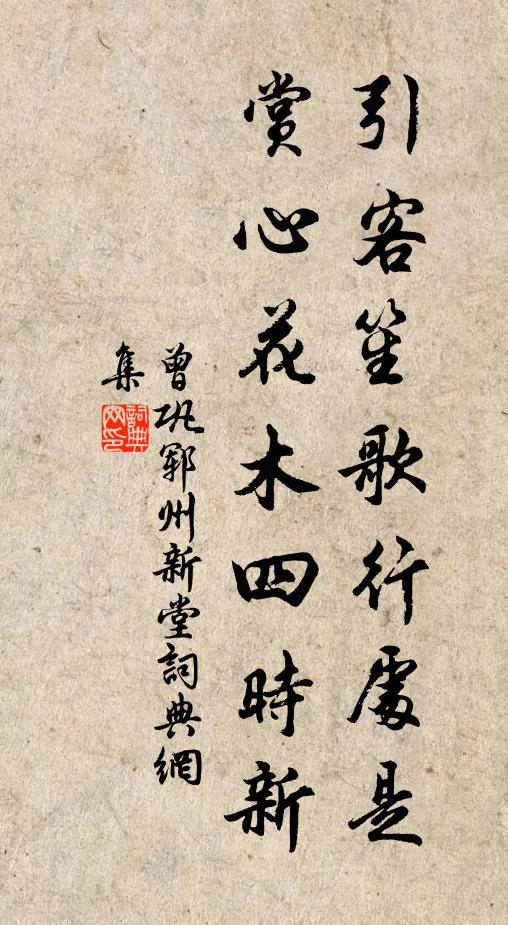 引客笙歌行處是
賞心花木四時新
曾巩郓州新堂詞典網
集
詞典
网印